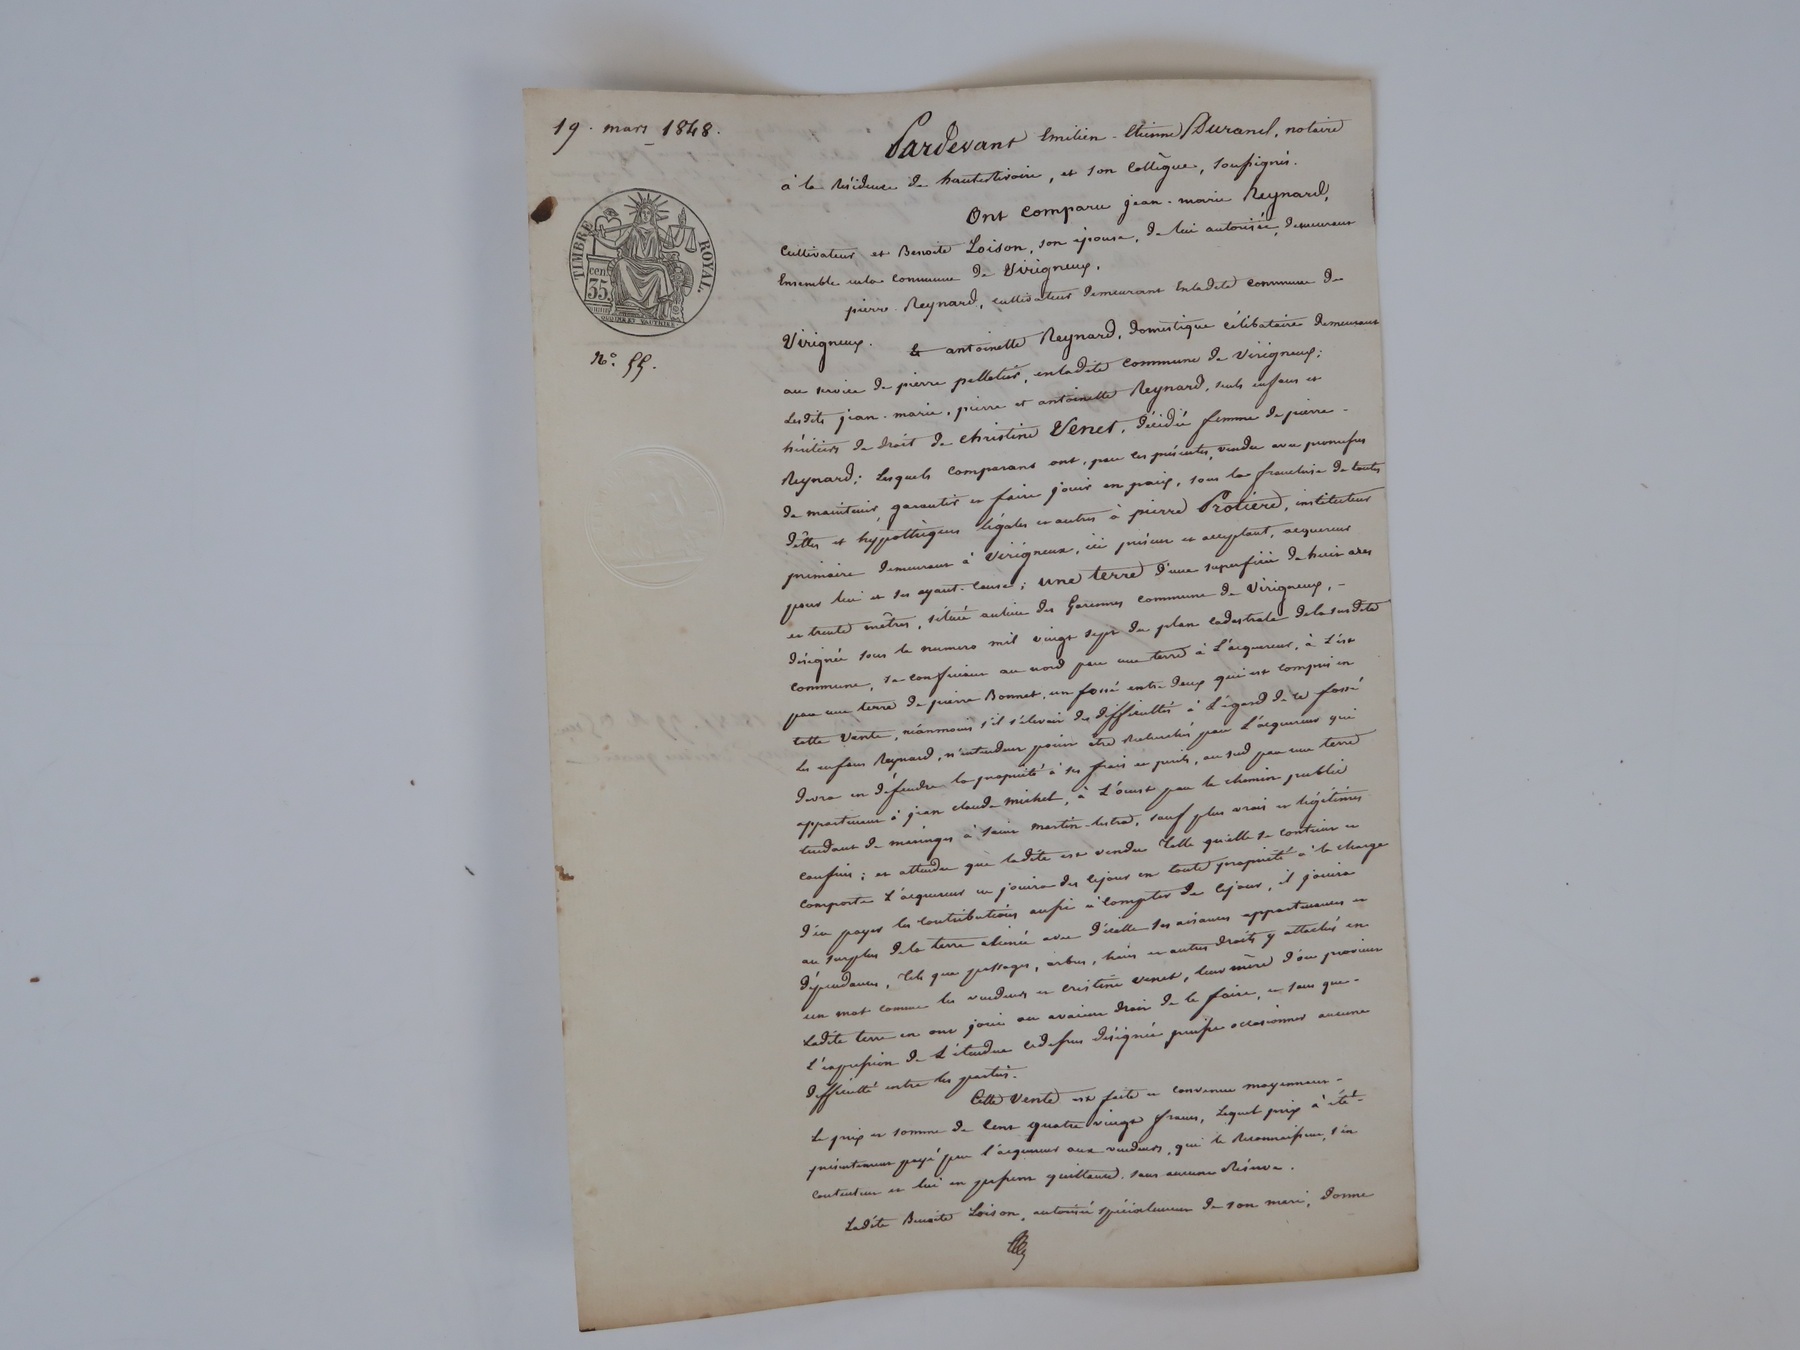 19. mars 1848.
TIMBRE ROYAL.
cen
35.
N.o 55.
Pardevant Emilien-Etienne Durand, notaire
à la Résidence de hauterivoire, et son Collègue, soussignés.
Ont comparu jean-marie Reynard,
Cultivateur et Benoite Loison, son épouse, de lui autorisée, demeurant
Ensemble enla commune de Virigneux.
pierre Reynard, cultivateur demeurant Enladite commune de
Virigneux. Et antoinette Reynard, domestique célibataire demeurant
au service de pierre pelletier, enladite commune de Virigneux;
Lesdits jean-marie, pierre et antoinette Reynard, seuls enfans et
héritiers de droit de christine Venet, décédée femme de pierre-
Reynard; Lesquels comparans ont, par ces présentes, vendu avec promesses
de maintenir, garantir et faire jouir en paix, sous la franchise de toutes
dêttes et hypothèques légales et autres à pierre Protière, instituteur
primaire demeurant à Virigneux, ici présent et acceptant, acquereur
pour lui et ses ayant-cause; une terre d'une superficie de huit ares
et trente mètres, située aulieu des Garennes commune de Virigneux, -
désignée sous le numero mil vingt sept du plan cadastrale de la susdite
commune, se confinant au nord par une terre à L'acquereur, à L'est
par une terre de pierre Bonnet, un fossé entre deux qui est compris en
cette Vente, néanmoins s'il s'élevait des difficultés à L'égard de ce fossé
les enfans Reynard, n'entendent point être recherchés par L'acquereur qui
devra en défendre la propriété à ses frais et perils, au sud par une terre
appartenant à jean claude michel, à L'ouest par le chemin public
tendant de maringes à saint martin-lestra, sauf plus vrais et légitimes
confins; et attendu que ladite est vendue telle qu'elle se contient et
comporte L'acquereur en jouira dès cejour en toute propriété à la charge
d'en payer les contributions aussi à compter de cejour, il jouira
au surplus de la terre aliénée avec d'icelle ses aisances appartenances et
dépendances, tels que passages, arbres, haies et autres droits y attachés en
un mot comme les vendeurs et cristine Venet, leur mère d'où provient
Ladite terre en ont joui ou avaient droit de le faire, et sans que-
L'expression de L'étendue cidessus désignée puisse occasionner aucune
difficulté entre les parties.
Cette Vente est faite et convenue moyennant-
Le prix et somme de Cent quatre vingt francs, Lequel prix à été-
présentement payé par l'acquereur aux vendeurs, qui le Reconnaissent, s'en
contentent et lui en passent quittance sans aucune Réserve.
Ladite Benoite Loison, autorisée spécialement de son mari, donne